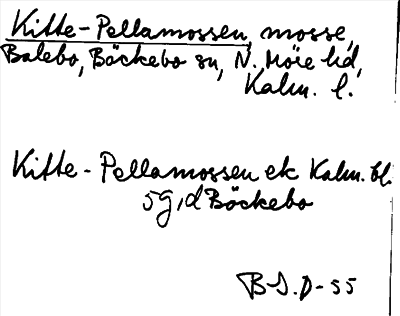 Kitte-Pellamossen, mosse,
Balebo, Böckebo sn, N. Möre hd,
Kalm. l.
Kitte-Pellamossen ek Kalm. bl.
5g,d Böckebo
B-S.D-55